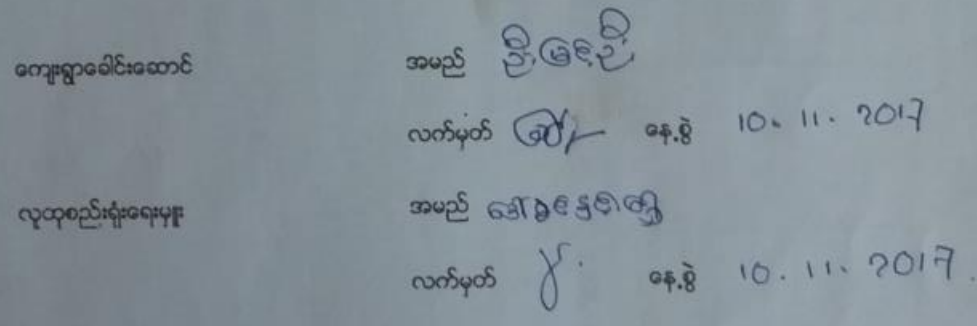 ကျေးရွာခေါင်းဆောင် အမည် ဦးမြင့်ဦး
လက်မှတ် နေ့စွဲ 10.11.2017
လူထုစည်းရုံးရေးမှူး အမည် ဒေါ်
လက်မှတ် နေ့စွဲ 10.11.2017